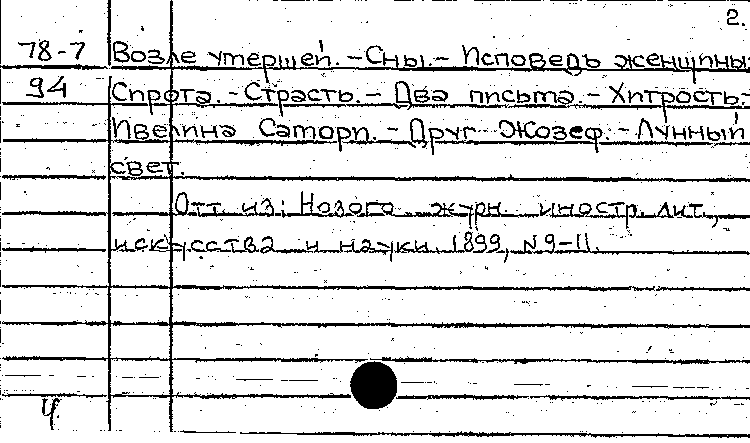 2.
78-7 Возле умершей. - Сны. - Исповедь женщины.
94 Сирота. - Страсть. - Два письма. - Хитрость. -
Ивелина Саморис. - Друг Жозеф. - Лунный
свет.
Отт. из: Нового журн. иностр. лит.,
искусства и науки. 1899, №9-11.
ч.